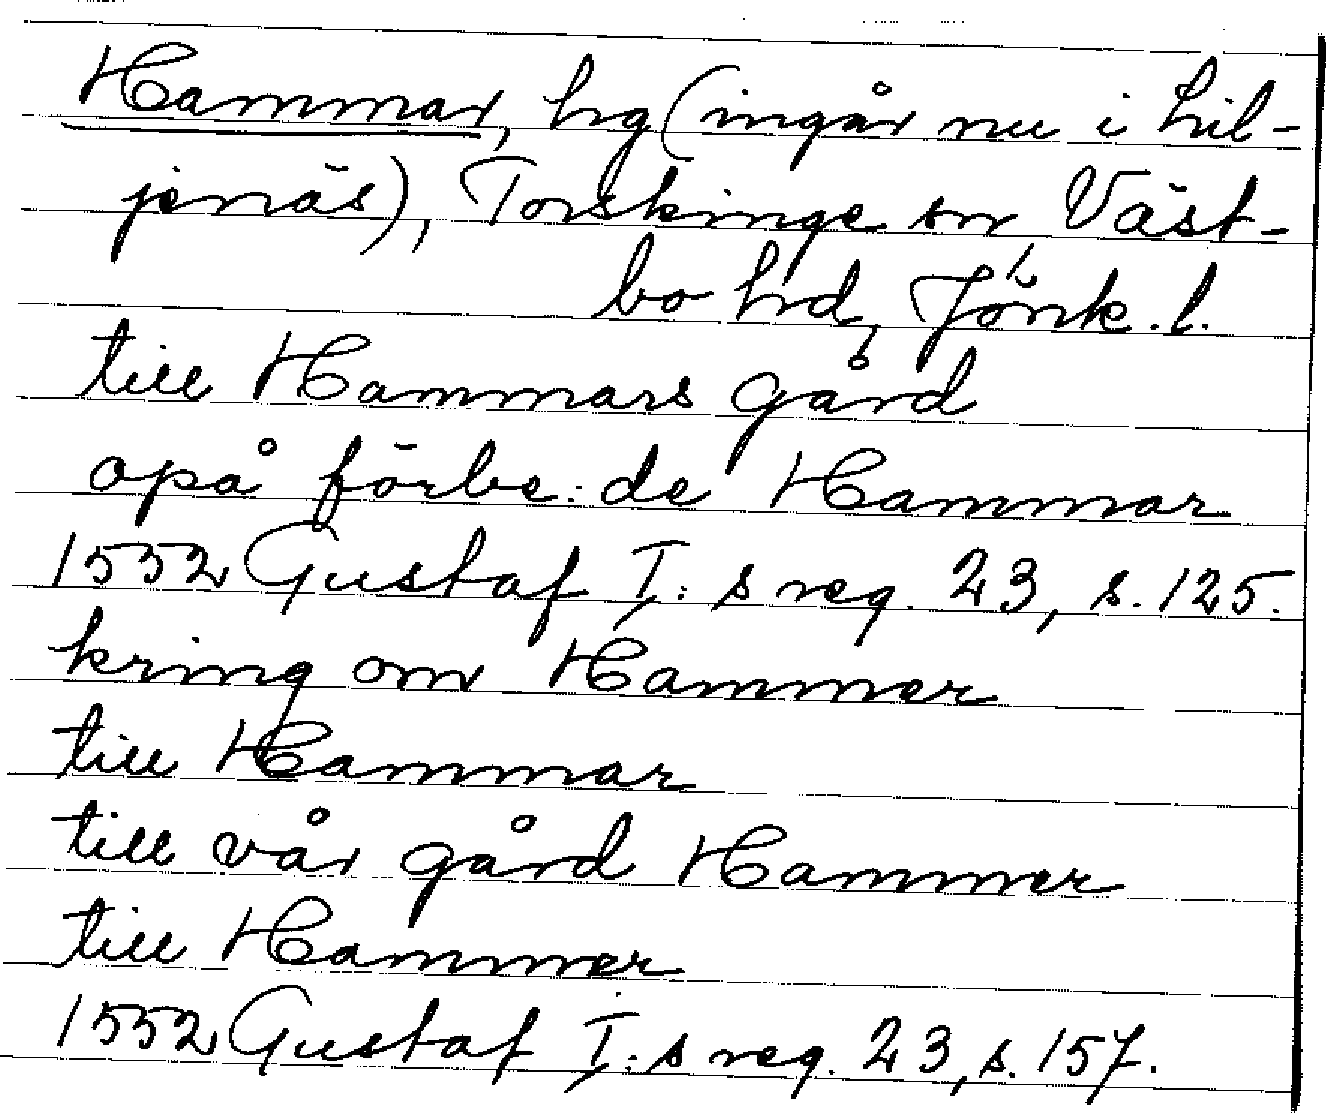 Hammar, hg (ingår nu i Lil-
jenäs), Torskinge sn, Väst-
bo hd, Jönk. l.
till Hammars gård
opå förbe:de Hammar
1552 Gustaf I:s reg. 23, s. 125.
kring om Hammer
till Hammar
till vår gård Hammer
till Hammer
1552 Gustaf I:s reg. 23, s. 157.